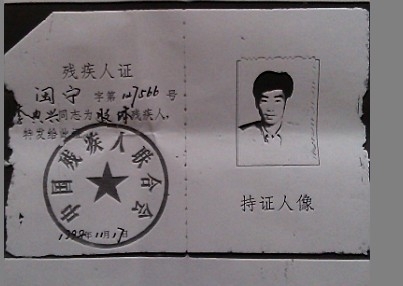 残疾人证
闽宁 字第 127566 号
典兴同志为肢体残疾人,
特发给此证
中国残疾人联合会
199 年11月17日
持证人像